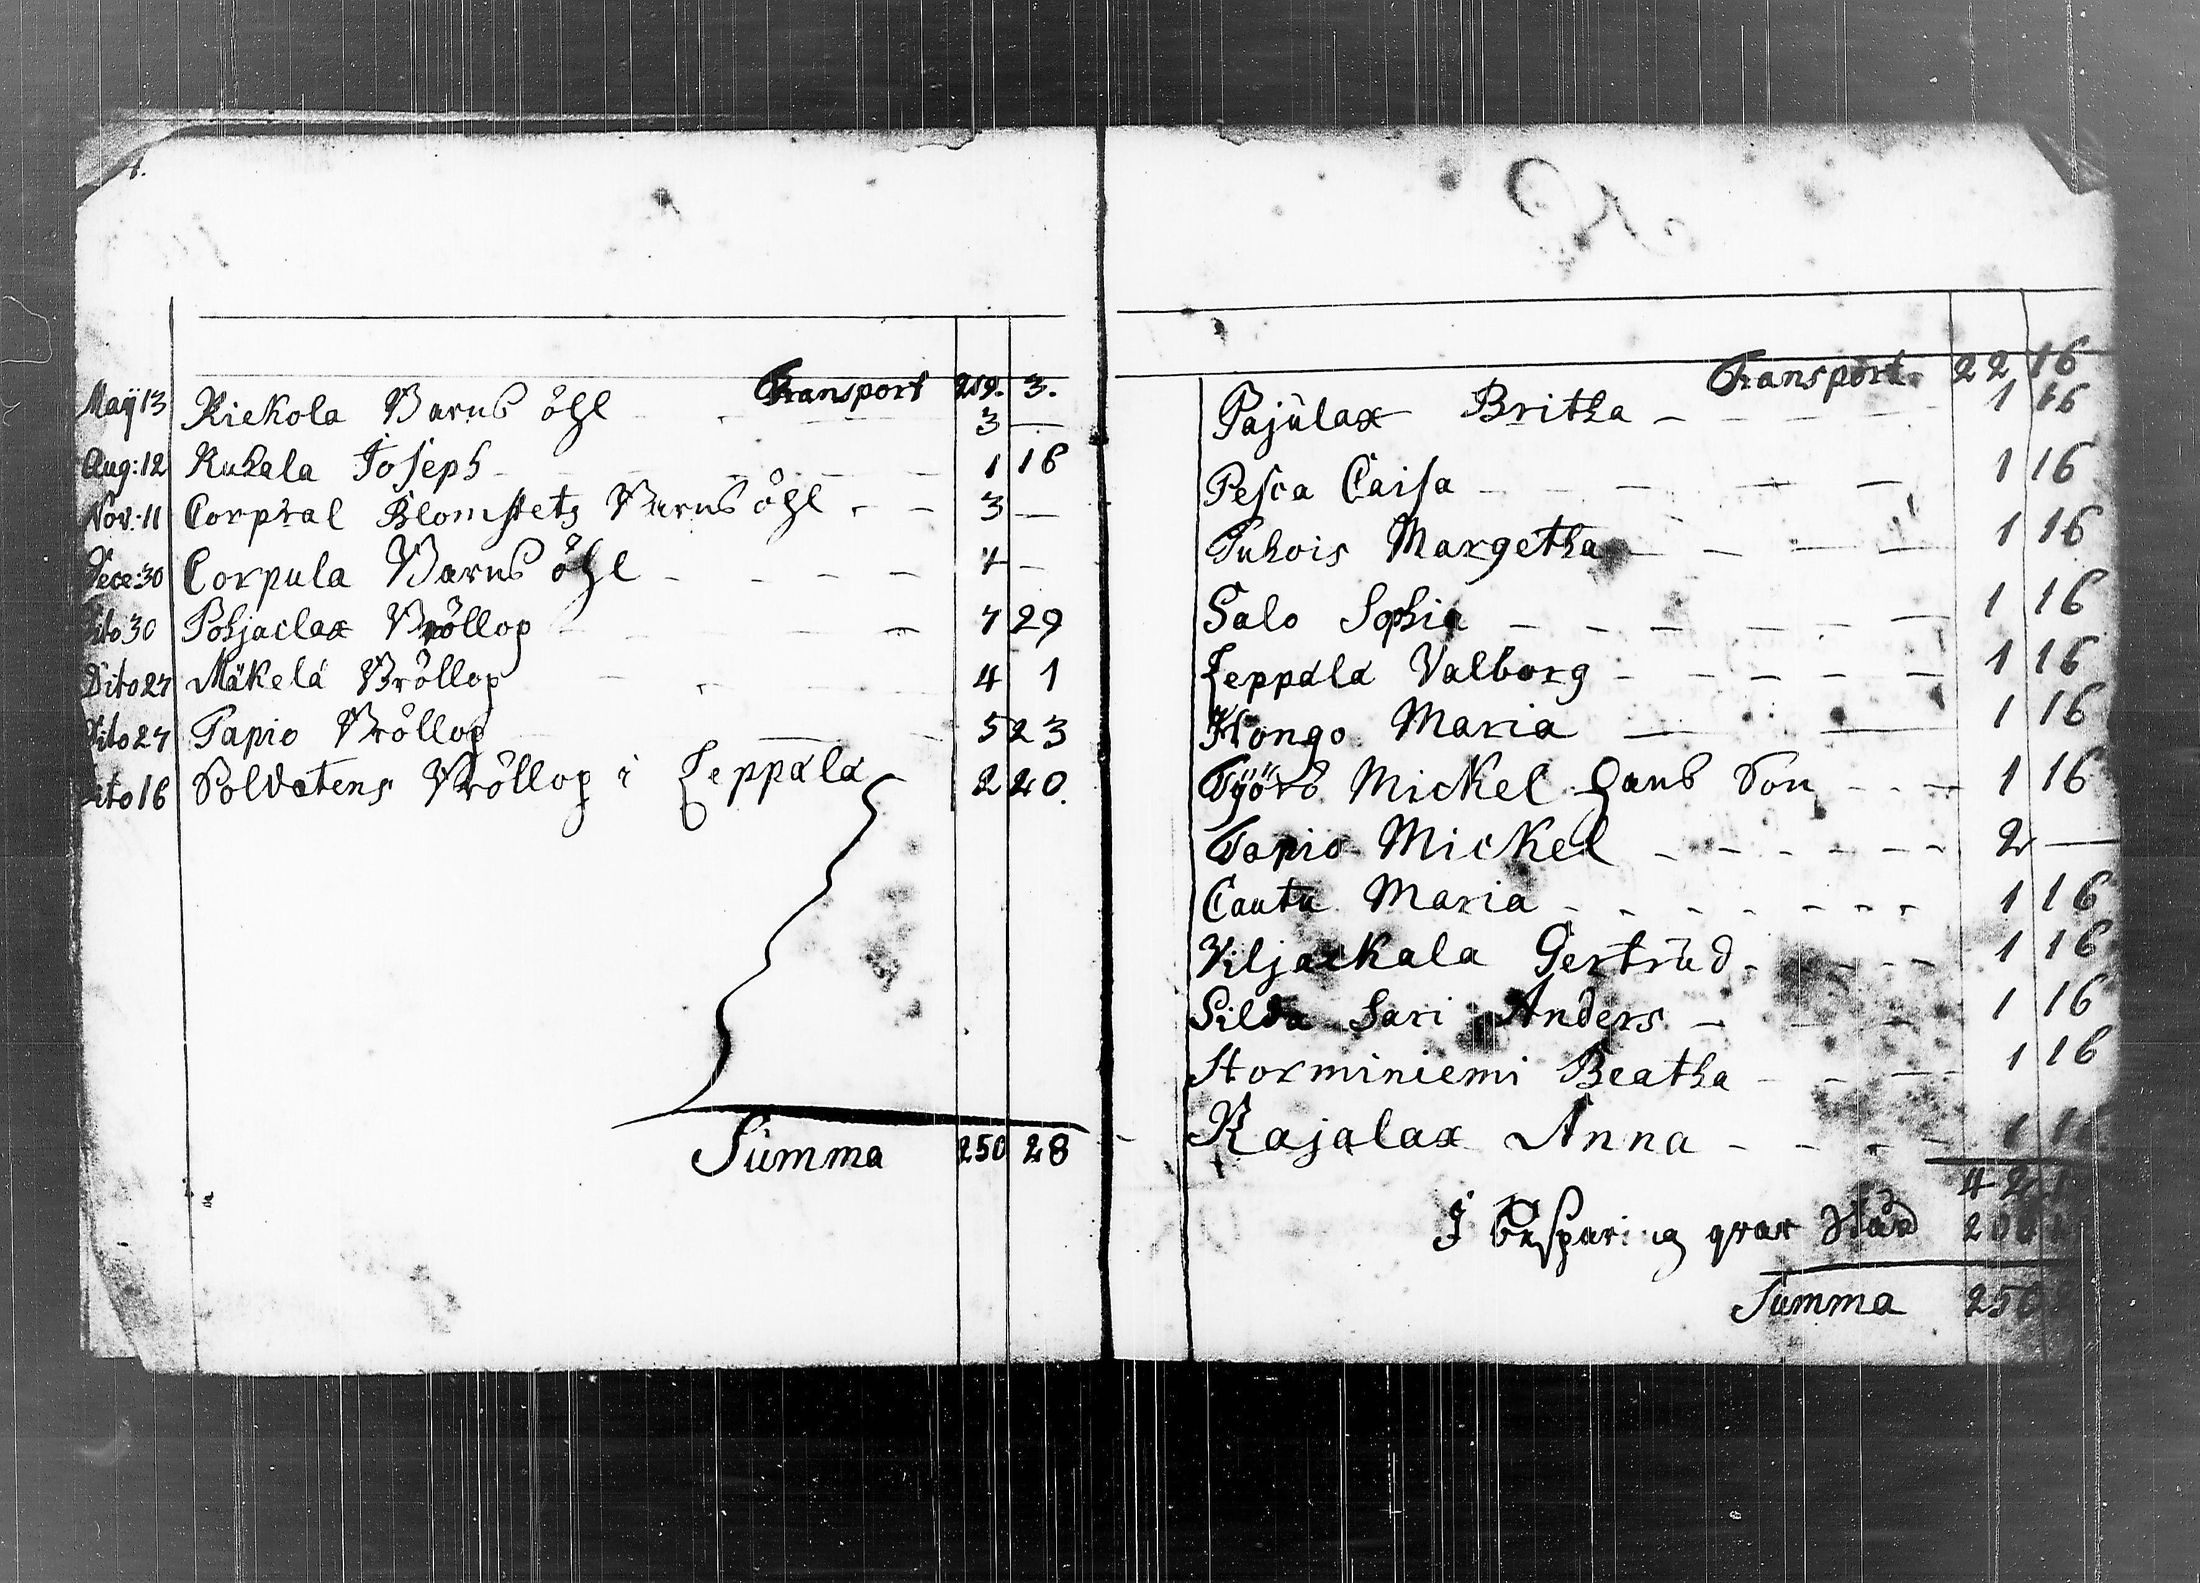 Transport 219. 3.
Maÿ 13 Kiekola Barns öhl 3 —
Aug: 12 Kuhala Joseph 1 16
Nov: 11 Corpral Blomstets Barns öhl 3 —
Dece: 30 Corpula Barns öhl —
Dito 30 Pohjaclax Bröllop 7 29
Dito 27 Mäkelä Bröllop 4 1
Dito 27 Tapio Bröllop 5 23
Dito 16 Soldatens Bröllop i Leppälä 2 20.
Summa 250 28
Transport 22 16
Pajulax Britha 1 16
Pesca Caisa 1 16
Tuhois Margetha 1 16
Salo Sophia 1 16
Leppälä Valborg 1 16
Hongo Maria 1 16
Mickel Hans Son 1 16
Tapio Mickel 2 —
Cautu Maria 1 16
Viljackala Gertrud 1 16
Silda Sari Anders 1 16
Storminiemi Beatha 1 16
Rajalax Anna 1 16
42
I besparing qvar
Summa 250